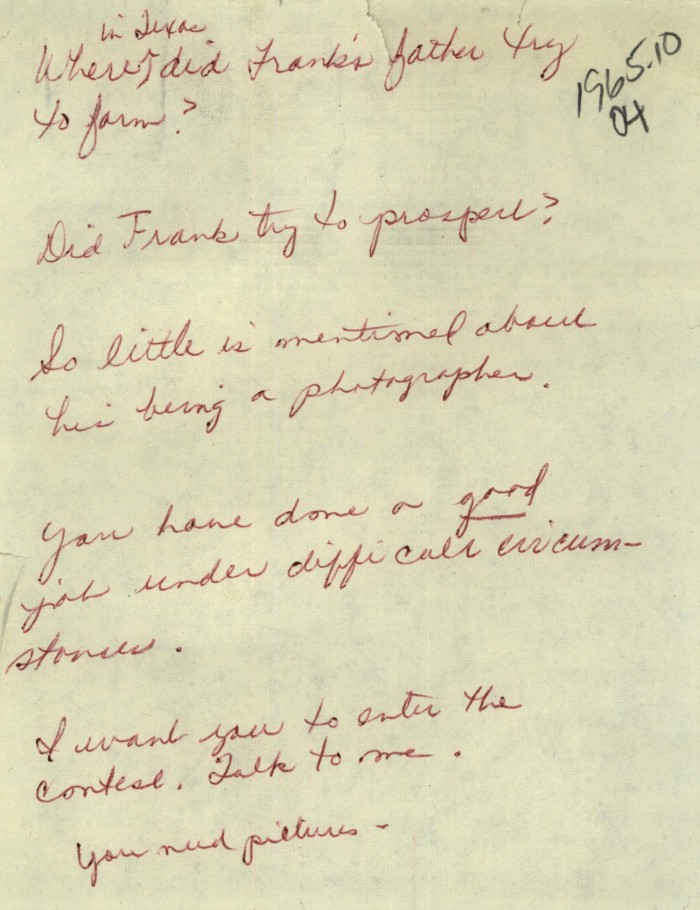 in Texas
Where did Frank's father try
to farm?
1965.10
04
Did Frank try to prosper?
So little is mentioned about
his being a photographer.
You have done a good
job under difficult circum-
stances.
I want you to enter the
contest. Talk to me.
You need pictures -